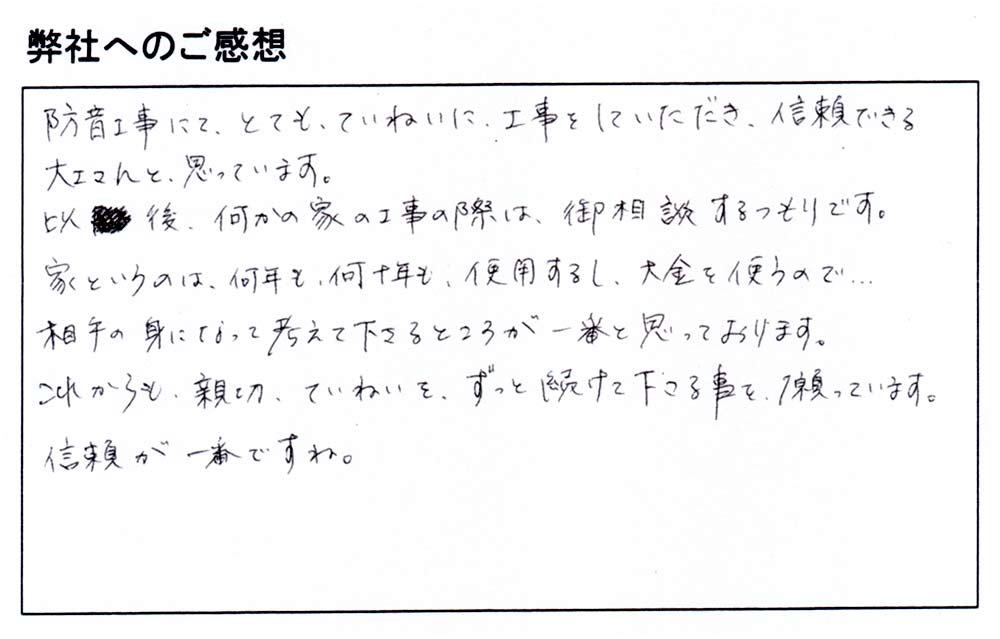 弊社へのご感想
防音工事にて、とても、ていねいに、工事をしていただき、信頼できる
大工さんと、思っています。
以後、何かの家の工事の際は、御相談するつもりです。
家というのは、何年も、何十年も、使用するし、大金を使うので…
相手の身になって考えて下さるところが一番と思っております。
これからも、親切、ていねいを、ずっと続けて下さる事を、願っています。
信頼が一番ですね。